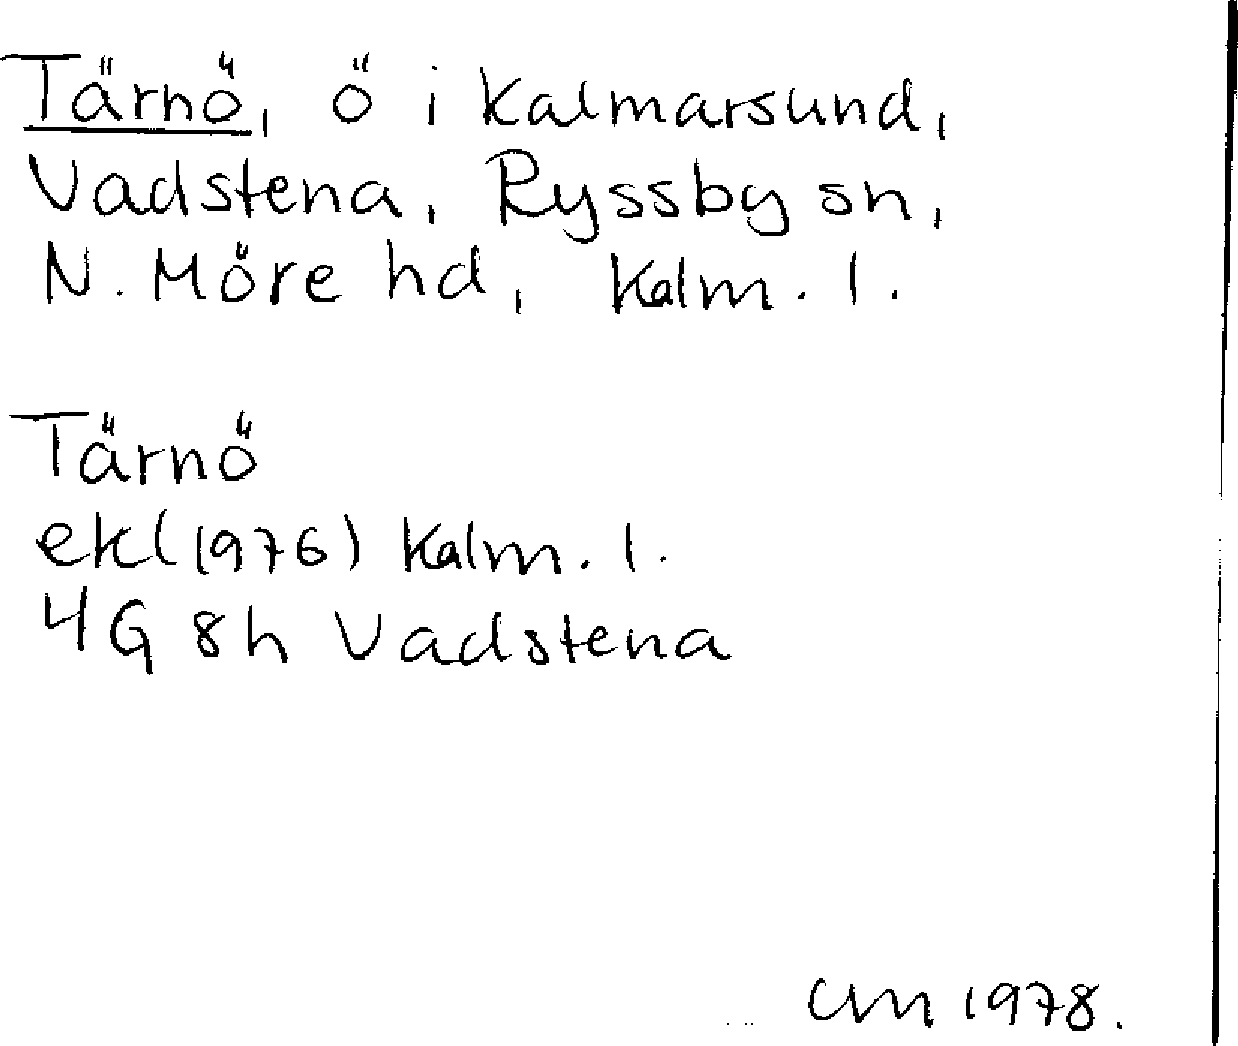 Tärnö, ö i Kalmarsund,
Vadstena, Ryssby sn,
N. Möre hd, Kalm. l.
Tärnö
ekl (1976) Kalm. l.
4G 8h Vadstena
CM 1978.